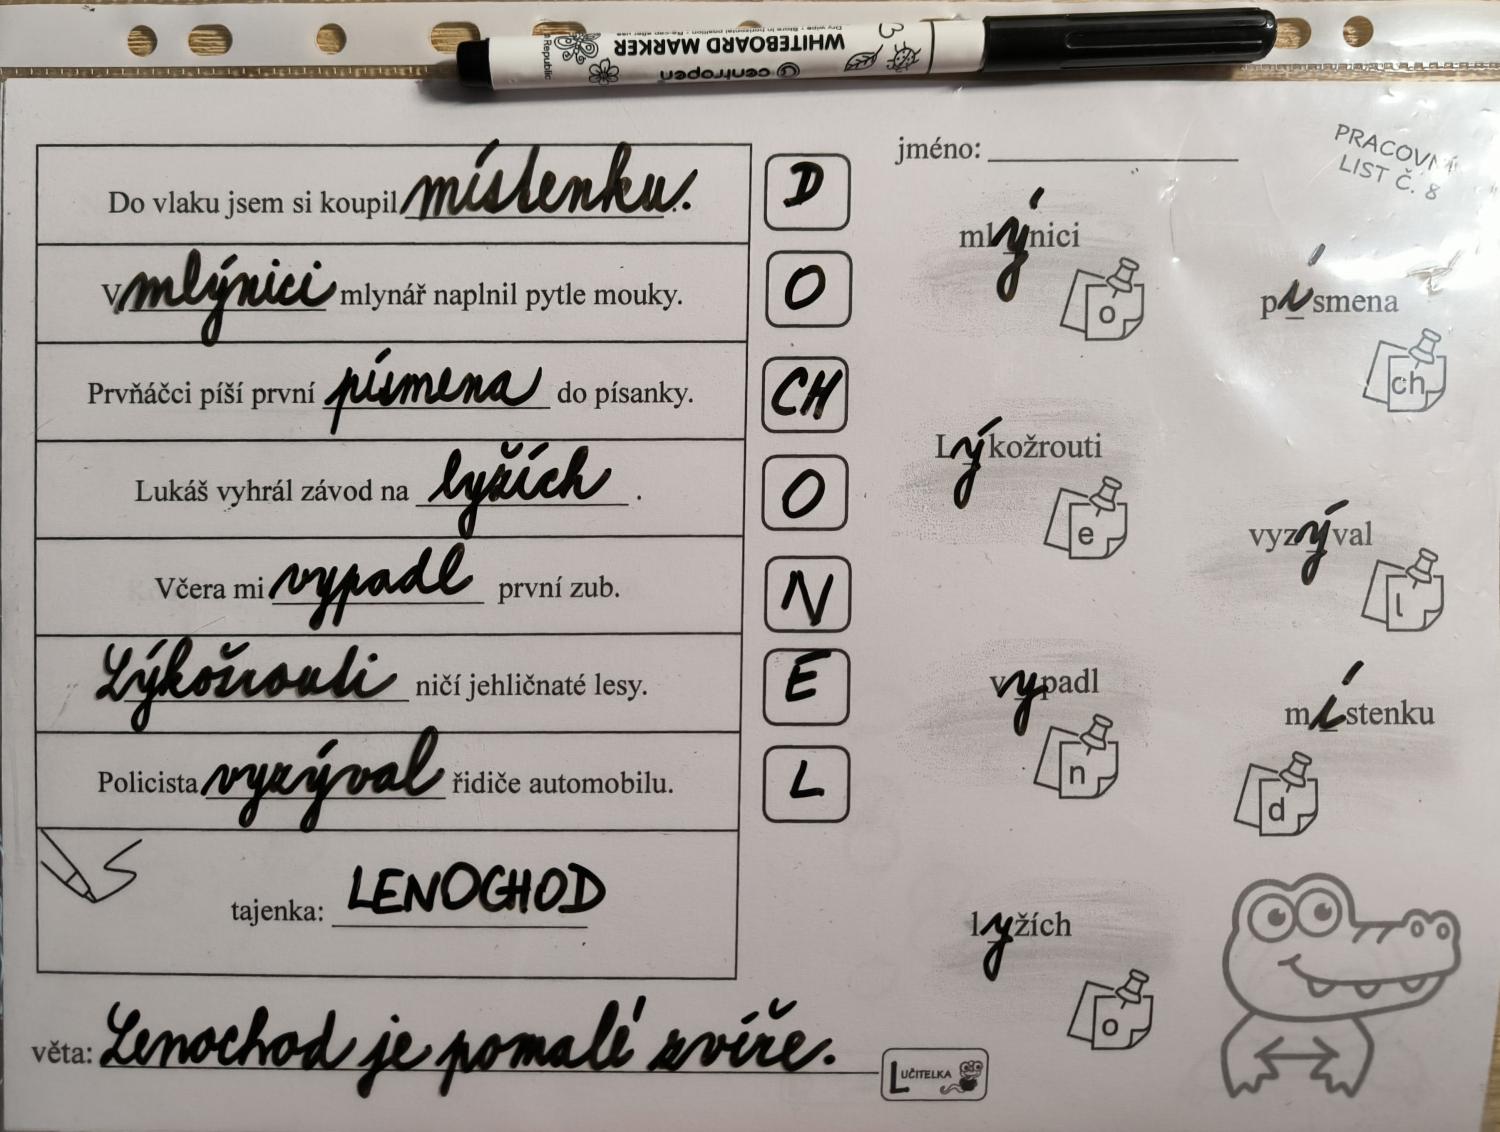 centropen
WHITEBOARD MARKER
Dry wipe • Store in horizontal position • Re-cap after use
Republic
PRACOVNÍ
LIST Č. 8
jméno:
Do vlaku jsem si koupil místenku.
D
V mlýnici mlynář naplnil pytle mouky.
O
Prvňáčci píší první písmena do písanky.
CH
Lukáš vyhrál závod na lyžích .
O
Včera mi vypadl první zub.
N
Lýkožrouti ničí jehličnaté lesy.
E
Policista vyzýval řidiče automobilu.
L
tajenka: LENOCHOD
věta: Lenochod je pomalé zvíře.
LUČITELKA
mlýnici
o
písmena
ch
Lýkožrouti
e
vyzýval
l
vypadl
n
místenku
d
lyžích
o